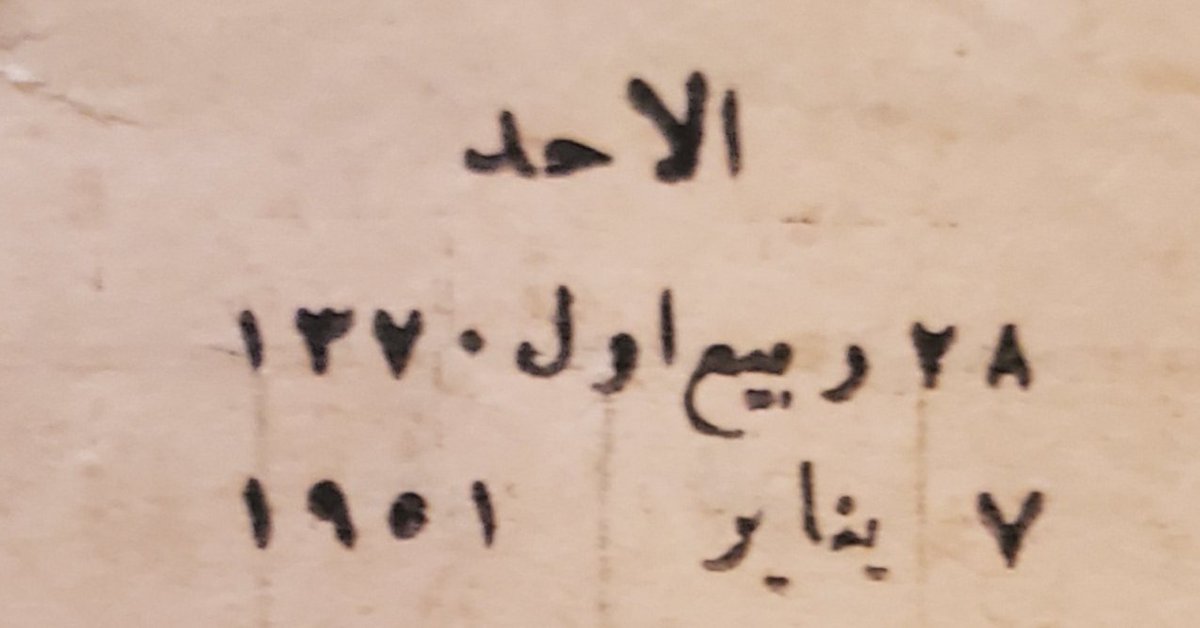 الاحد
٢٨ ربيع اول ١٣٧٠
٧ يناير ١٩٥١